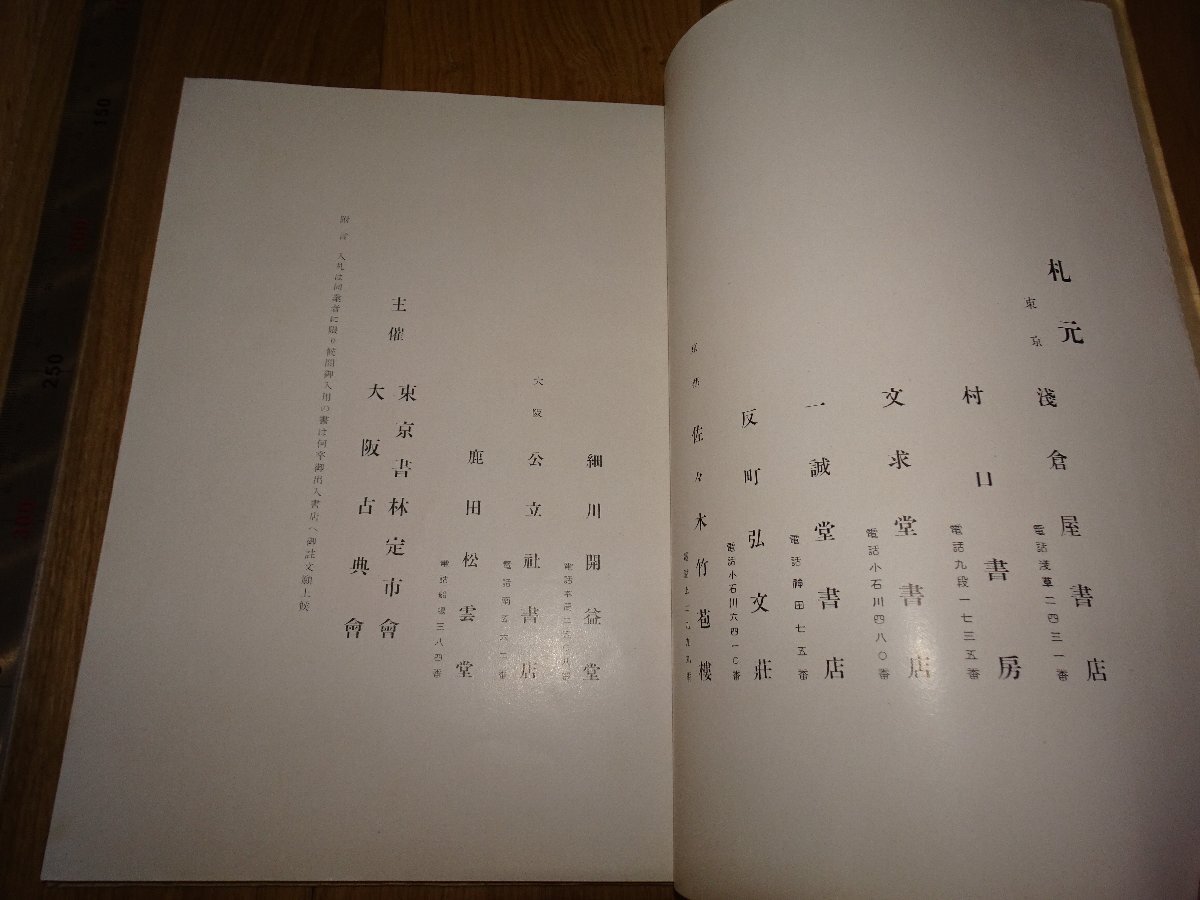 札元
東京
淺倉屋書店
電話淺草二四三一番
村口書房
電話九段一七三五番
文求堂書店
電話小石川四八〇番
一誠堂書店
電話神田七五番
反町弘文莊
電話小石川六四一〇番
京都
佐々木竹苞樓
細川開益堂
大阪
公立社書店
鹿田松雲堂
主催
東京書林定市會
大阪古典會
附言 入札は同業者に限り候間御入用の書は何卒御出入書店へ御註文願上候
150
250